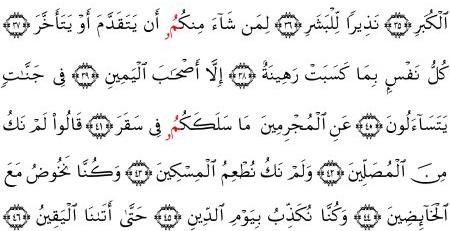 اَلْكُبَرِ ﴿٣٥﴾ نَذِيرًا لِّلْبَشَرِ ﴿٣٦﴾ لِمَن شَآءَ مِنكُمُۥ أَن يَتَقَدَّمَ أَوْ يَتَأَخَّرَ ﴿٣٧﴾
كُلُّ نَفْسٍۭ بِمَا كَسَبَتْ رَهِينَةٌ ﴿٣٨﴾ إِلَّآ أَصْحَٰبَ اَلْيَمِينِ ﴿٣٩﴾ فِى جَنَّٰتٍ
يَتَسَآءَلُونَ ﴿٤٠﴾ عَنِ اِلْمُجْرِمِينَ مَا سَلَكَكُمُۥ فِى سَقَرَ ﴿٤١﴾ قَالُوا۟ لَمْ نَكُ
مِنَ اَلْمُصَلِّينَ ﴿٤٢﴾ وَلَمْ نَكُ نُطْعِمُ اُلْمِسْكِينَ ﴿٤٣﴾ وَكُنَّا نَخُوضُ مَعَ
اَلْخَآئِضِينَ ﴿٤٤﴾ وَكُنَّا نُكَذِّبُ بِيَوْمِ اِلدِّينِ ﴿٤٥﴾ حَتَّىٰٓ أَتَىٰنَا اَلْيَقِينُ ﴿٤٦﴾